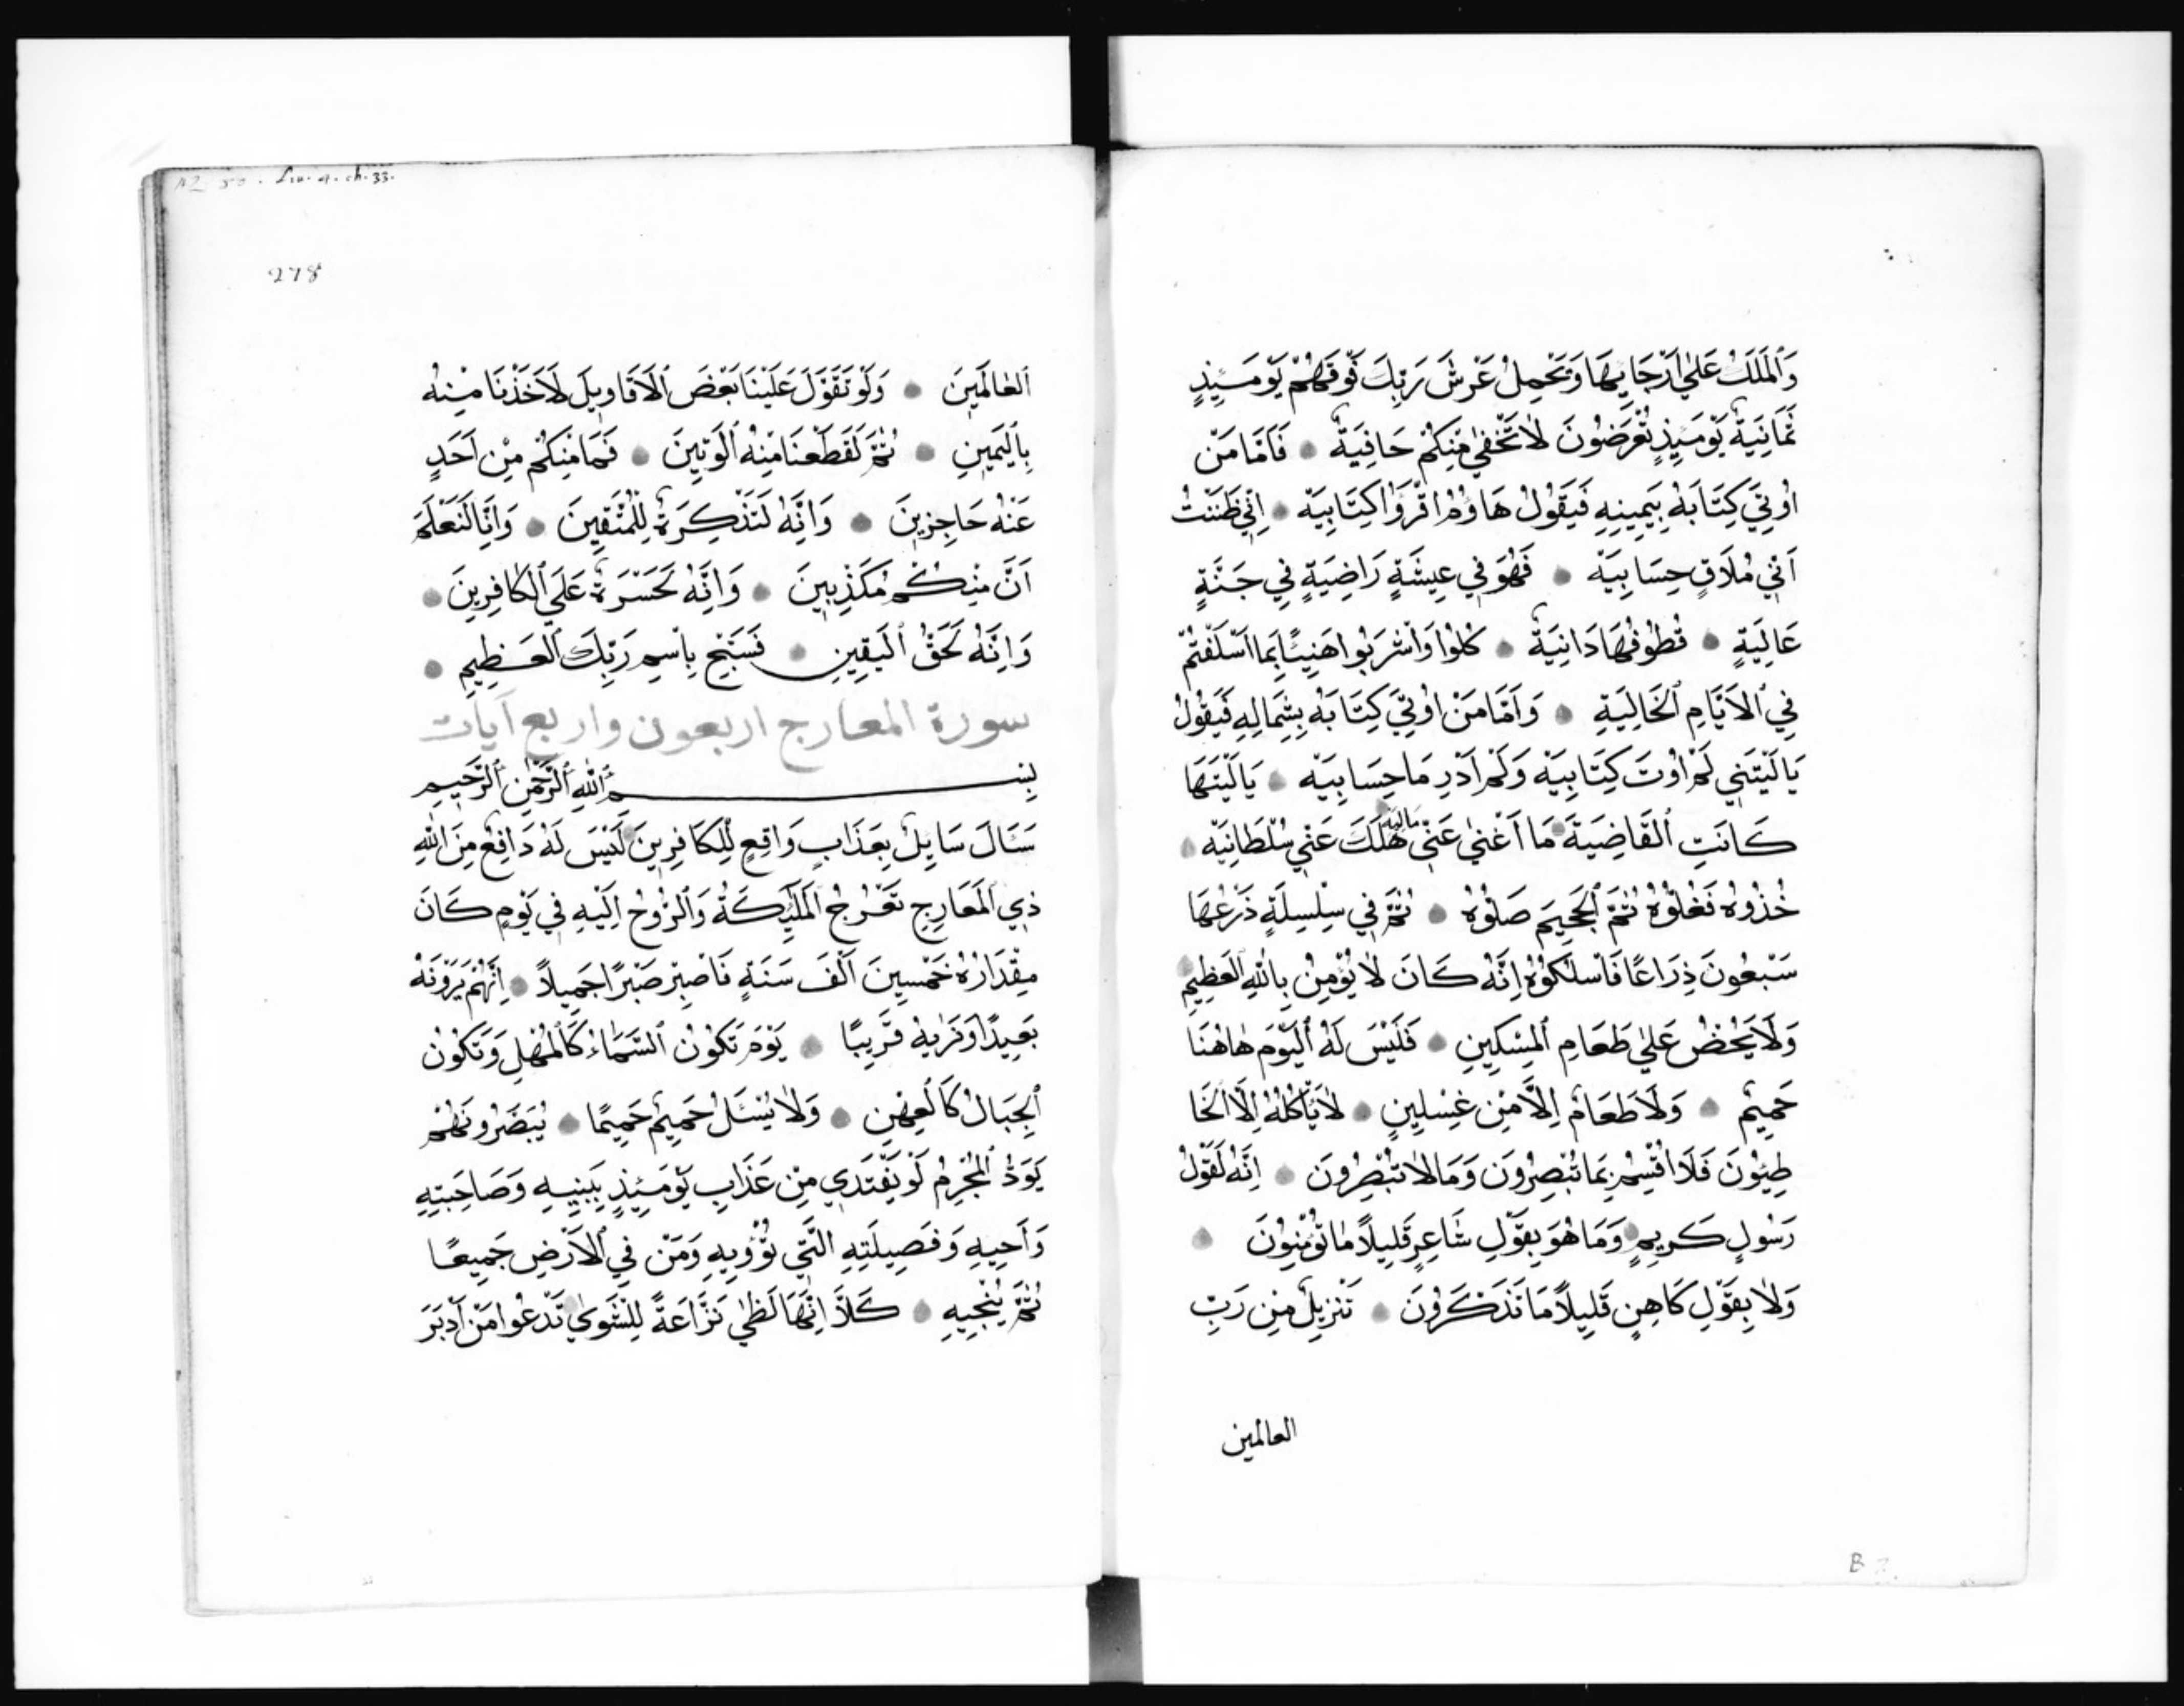 وَالْمَلَكُ عَلٰي اَرْجَايِهَا وَيَحْمِلُ عَرْشَ رَبِّكَ فَوْقَهُمْ يَوْمَئِذٍ
ثَمَانِيَةٌ يَوْمَئِذٍ تُعْرَضُونَ لَا تَخْفٰي مِنْكُمْ خَافِيَةٌ فَاَمَّا مَنْ
اُوتِيَ كِتَابَهُ بِيَمِينِهِ فَيَقُولُ هَاؤُمُ اقْرَؤُا كِتَابِيَهْ اِنِّي ظَنَنْتُ
اَنِّي مُلَاقٍ حِسَابِيَهْ فَهُوَ فِي عِيشَةٍ رَاضِيَةٍ فِي جَنَّةٍ
عَالِيَةٍ قُطُوفُهَا دَانِيَةٌ كُلُوا وَاشْرَبُوا هَنِيئًا بِمَا اَسْلَفْتُمْ
فِي الْاَيَّامِ الْخَالِيَةِ وَاَمَّا مَنْ اُوتِيَ كِتَابَهُ بِشِمَالِهِ فَيَقُولُ
يَا لَيْتَنِي لَمْ اُوتَ كِتَابِيَهْ وَلَمْ اَدْرِ مَا حِسَابِيَهْ يَا لَيْتَهَا
كَانَتِ الْقَاضِيَةَ مَا اَغْنٰي عَنِّي مَالِيَهْ هَلَكَ عَنِّي سُلْطَانِيَهْ
خُذُوهُ فَغُلُّوهُ ثُمَّ الْجَحِيمَ صَلُّوهُ ثُمَّ فِي سِلْسِلَةٍ ذَرْعُهَا
سَبْعُونَ ذِرَاعًا فَاسْلُكُوهُ اِنَّهُ كَانَ لَا يُؤْمِنُ بِاللّٰهِ الْعَظِيمِ
وَلَا يَحُضُّ عَلٰي طَعَامِ الْمِسْكِينِ فَلَيْسَ لَهُ الْيَوْمَ هَاهُنَا
حَمِيمٌ وَلَا طَعَامٌ اِلَّا مِنْ غِسْلِينٍ لَا يَأْكُلُهُ اِلَّا الْخَا
طِئُونَ فَلَا اُقْسِمُ بِمَا تُبْصِرُونَ وَمَا لَا تُبْصِرُونَ اِنَّهُ لَقَوْلُ
رَسُولٍ كَرِيمٍ وَمَا هُوَ بِقَوْلِ شَاعِرٍ قَلِيلًا مَا تُؤْمِنُونَ
وَلَا بِقَوْلِ كَاهِنٍ قَلِيلًا مَا تَذَكَّرُونَ تَنْزِيلٌ مِنْ رَبِّ
العالمين
278
الْعَالَمِينَ وَلَوْ تَقَوَّلَ عَلَيْنَا بَعْضَ الْاَقَاوِيلَ لَاَخَذْنَا مِنْهُ
بِالْيَمِينِ ثُمَّ لَقَطَعْنَا مِنْهُ الْوَتِينَ فَمَا مِنْكُمْ مِنْ اَحَدٍ
عَنْهُ حَاجِزِينَ وَاِنَّهُ لَتَذْكِرَةٌ لِلْمُتَّقِينَ وَاِنَّا لَنَعْلَمُ
اَنَّ مِنْكُمْ مُكَذِّبِينَ وَاِنَّهُ لَحَسْرَةٌ عَلَي الْكَافِرِينَ
وَاِنَّهُ لَحَقُّ الْيَقِينِ فَسَبِّحْ بِاسْمِ رَبِّكَ الْعَظِيمِ
سورة المعارج اربعون واربع آيات
بِسْمِ اللّٰهِ الرَّحْمٰنِ الرَّحِيمِ
سَئَالَ سَايِلٌ بِعَذَابٍ وَاقِعٍ لِلْكَافِرِينَ لَيْسَ لَهُ دَافِعٌ مِنَ اللّٰهِ
ذِي الْمَعَارِجِ تَعْرُجُ الْمَلٰئِكَةُ وَالرُّوحُ اِلَيْهِ فِي يَوْمٍ كَانَ
مِقْدَارُهُ خَمْسِينَ اَلْفَ سَنَةٍ فَاصْبِرْ صَبْرًا جَمِيلًا اِنَّهُمْ يَرَوْنَهُ
بَعِيدًا وَنَرٰيهُ قَرِيبًا يَوْمَ تَكُونُ السَّمَاءُ كَالْمُهْلِ وَتَكُونُ
الْجِبَالُ كَالْعِهْنِ وَلَا يُسْئَلُ حَمِيمٌ حَمِيمًا يُبَصَّرُونَهُمْ
يَوَدُّ الْمُجْرِمُ لَوْ يَفْتَدِي مِنْ عَذَابِ يَوْمَئِذٍ بِبَنِيهِ وَصَاحِبَتِهِ
وَاَخِيهِ وَفَصِيلَتِهِ الَّتِي تُؤْوِيهِ وَمَنْ فِي الْاَرْضِ جَمِيعًا
ثُمَّ يُنْجِيهِ كَلَّا اِنَّهَا لَظٰي نَزَّاعَةً لِلشَّوٰي تَدْعُوا مَنْ اَدْبَرَ